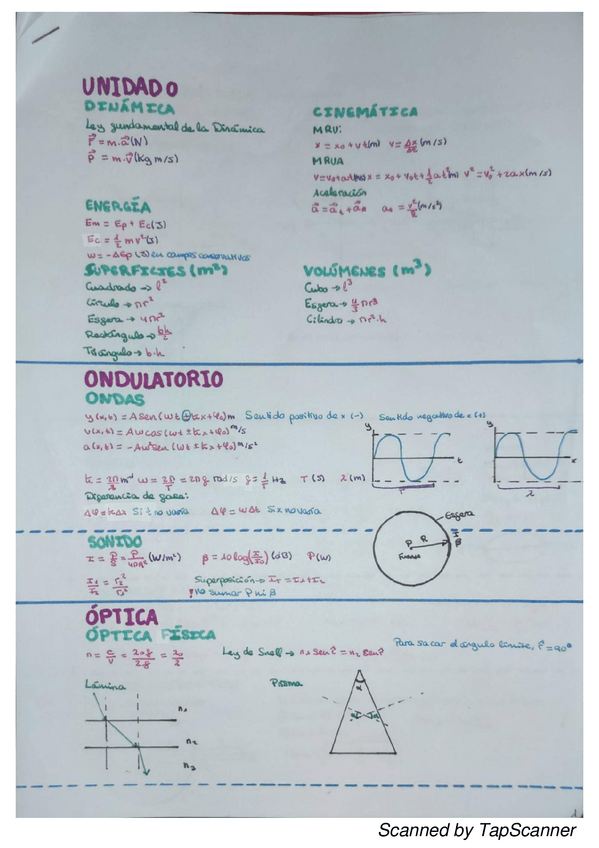 UNIDAD 0
DINÁMICA
Ley fundamental de la Dinámica
F = m.a (N)
P = m.v (Kg m/s)
CINEMÁTICA
MRU:
x = x0 + vt (m) v = Δx/Δt (m/s)
MRUA
v = v0 + at (m/s) x = x0 + v0t + 1/2 at² (m) v² = v0² + 2ax (m/s)
Aceleración
a = at + an an = v²/R (m/s²)
ENERGÍA
Em = Ep + Ec (J)
Ec = 1/2 mv² (J)
W = -ΔEp (J) en campos conservativos
SUPERFICIES (m²)
Cuadrado → l²
Círculo → πr²
Esfera → 4πr²
Rectángulo → b·h/2
Triángulo → b.h
VOLÚMENES (m³)
Cubo → l³
Esfera → 4/3 πr³
Cilindro → πr².h
ONDULATORIO
ONDAS
y(x,t) = A sen (ωt ± kx + φ0) m Sentido positivo de x (-) Sentido negativo de x (+)
v(x,t) = Aω cos (ωt ± kx + φ0) m/s
a(x,t) = -Aω² sen (ωt ± kx + φ0) m/s²
y t T
y x λ
k = 2π/λ m⁻¹ ω = 2π/T = 2πf rad/s f = 1/T Hz T (s) λ (m)
Diferencia de fase:
Δφ = kΔx Si t no varía Δφ = ωΔt Si x no varía
SONIDO
I = P/S = P/4πR² (W/m²) β = 10 log (I/I0) (dB) P (W)
I1/I2 = r2²/r1² Superposición → IT = I1 + I2
! no sumar P ni β
Esfera
P R
Fuente
I β
ÓPTICA
ÓPTICA FÍSICA
n = c/v = λ0f/λf = λ0/λ Ley de Snell → n1 sen î = n2 sen r̂ Para sacar el ángulo límite, r̂ = 90°
Lámina
n1
n2
n3
Prisma
α
Scanned by TapScanner